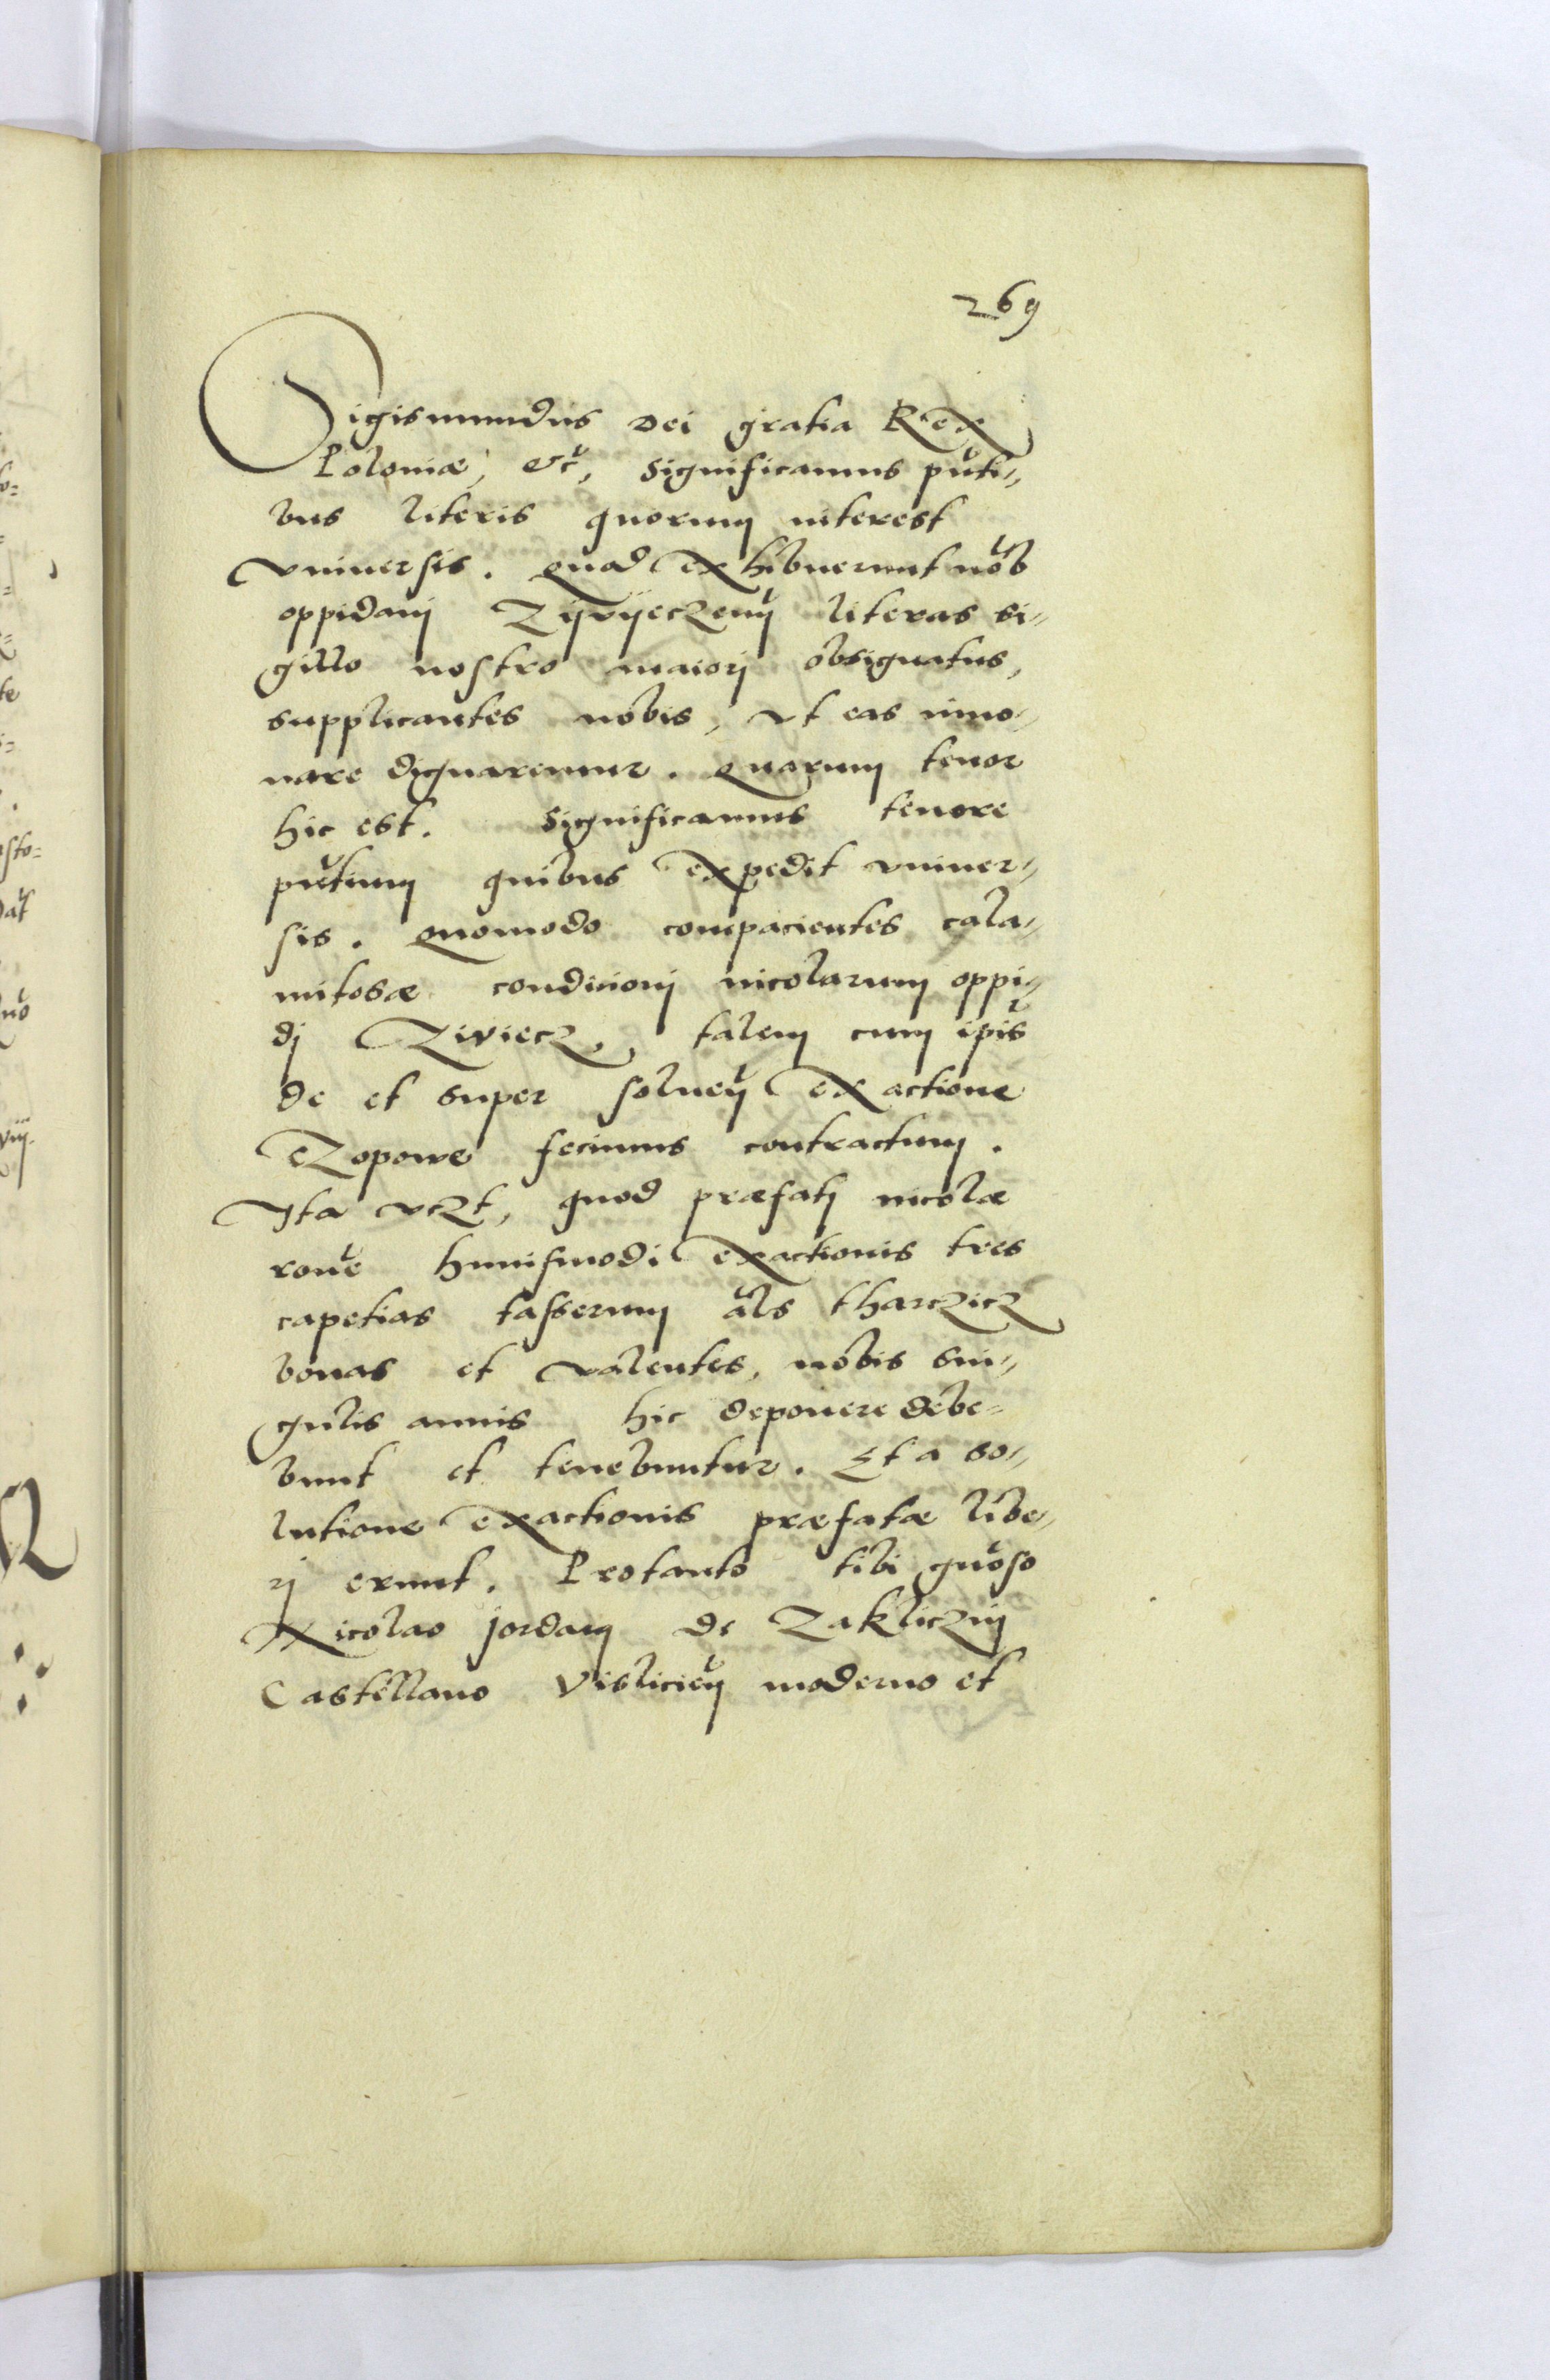 269
Sigismundus Dei gratia Rex
Poloniæ, &c̃, Significamus pñti-
bus literis quorum interest
vniuersis. Quod exhibuerunt nob̃
oppidanj Zyvyeczeñ literas si-
gillo nostro maiorj obsignatas,
supplicantes nobis, vt eas inno-
uare dignaremur. Quarum tenor
hic est. Significamus tenore
pñtium quibus expedit vniuer-
sis. Quomodo compacientes cala-
mitosæ condicionj incolarum oppi-
dj Ziviecz, talem cum ip̃is
de et super solueñ exactione
Czopowe fecimus contractum.
Ita vczt, quod præfatj incolæ
roñe huiusmodi exactionis tres
capetias tasserum al̃s tharczicz
bonas et valentes, nobis sin-
gulis annis hic deponere debe-
bunt et tenebuntur. Et a so-
lutione exactionis præfatæ libe-
rj erunt. Protanto tibi gñoso
Nicolao Jordan de Zakliczin
Castellano Vislicieñ moderno et